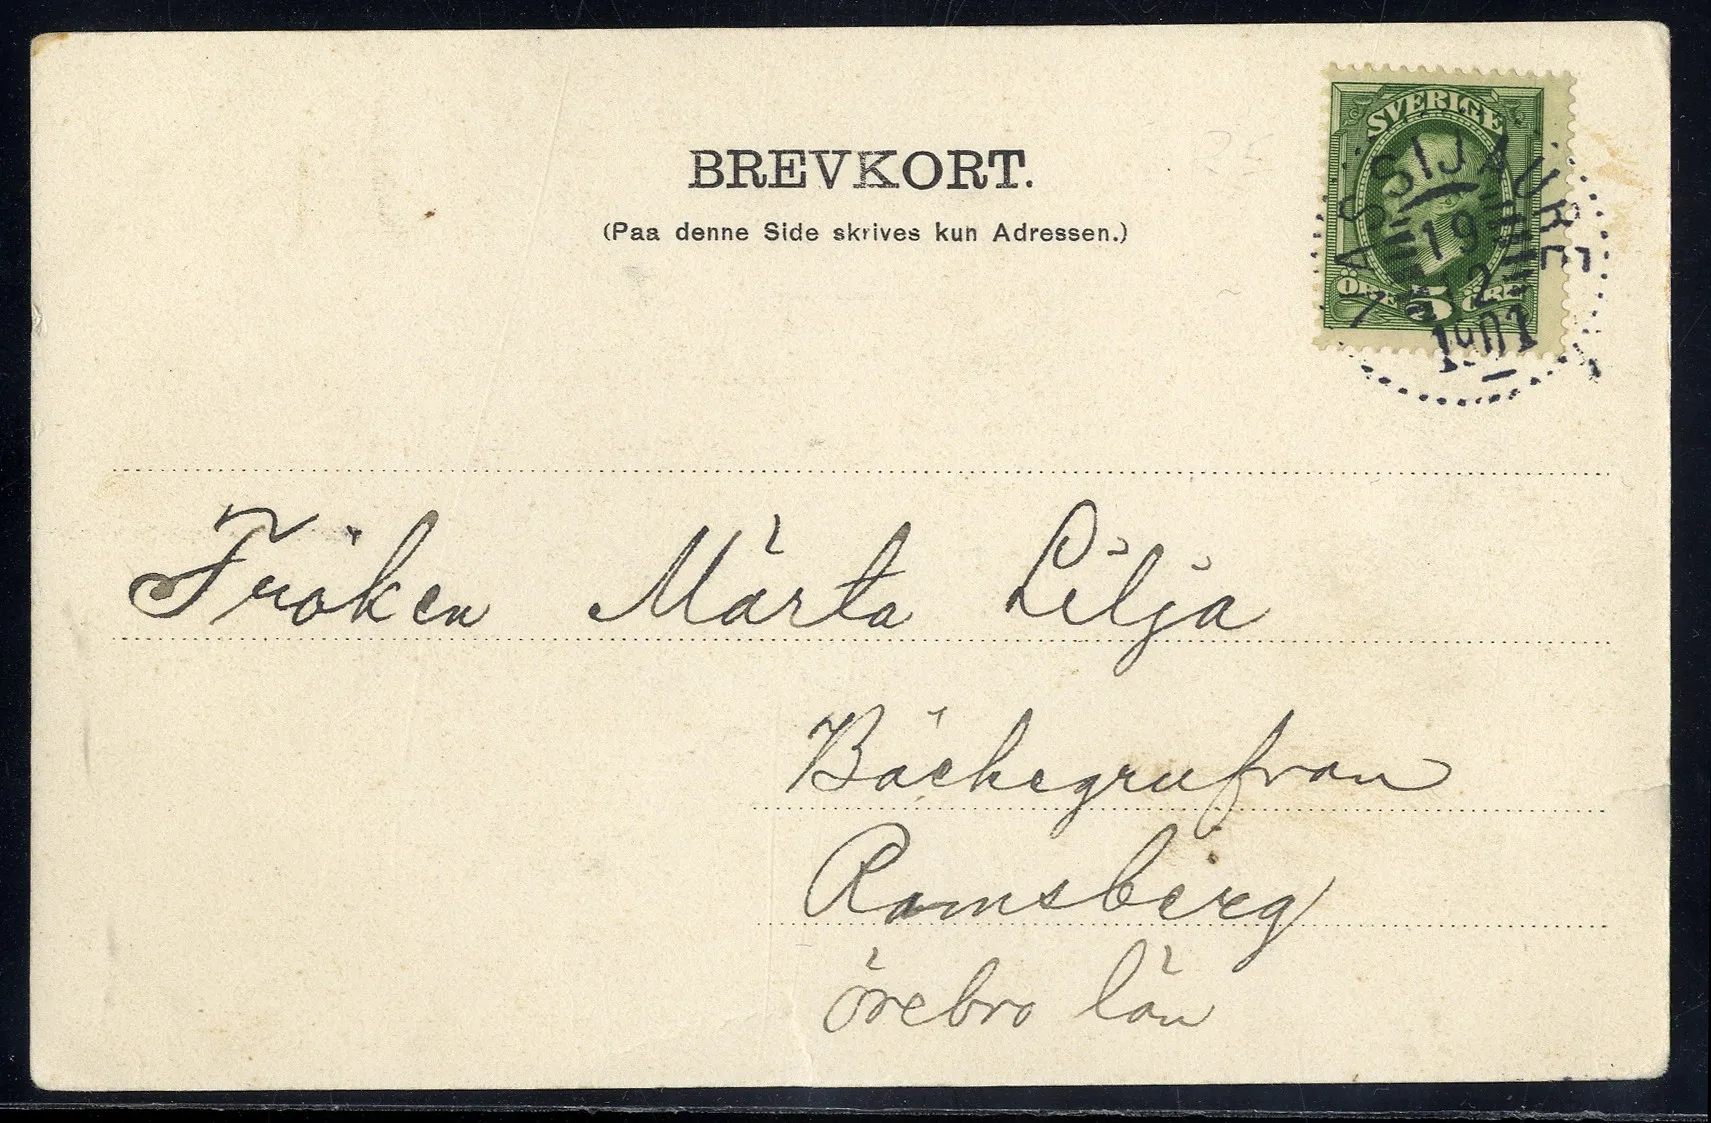 BREVKORT.
(Paa denne Side skrives kun Adressen.)
SVERIGE
ÖRE 5 ÖRE
VASSIJAURE
19
2
1901
Fröken Märta Lilja
Bäckegrufvan
Ramsberg
Örebro län